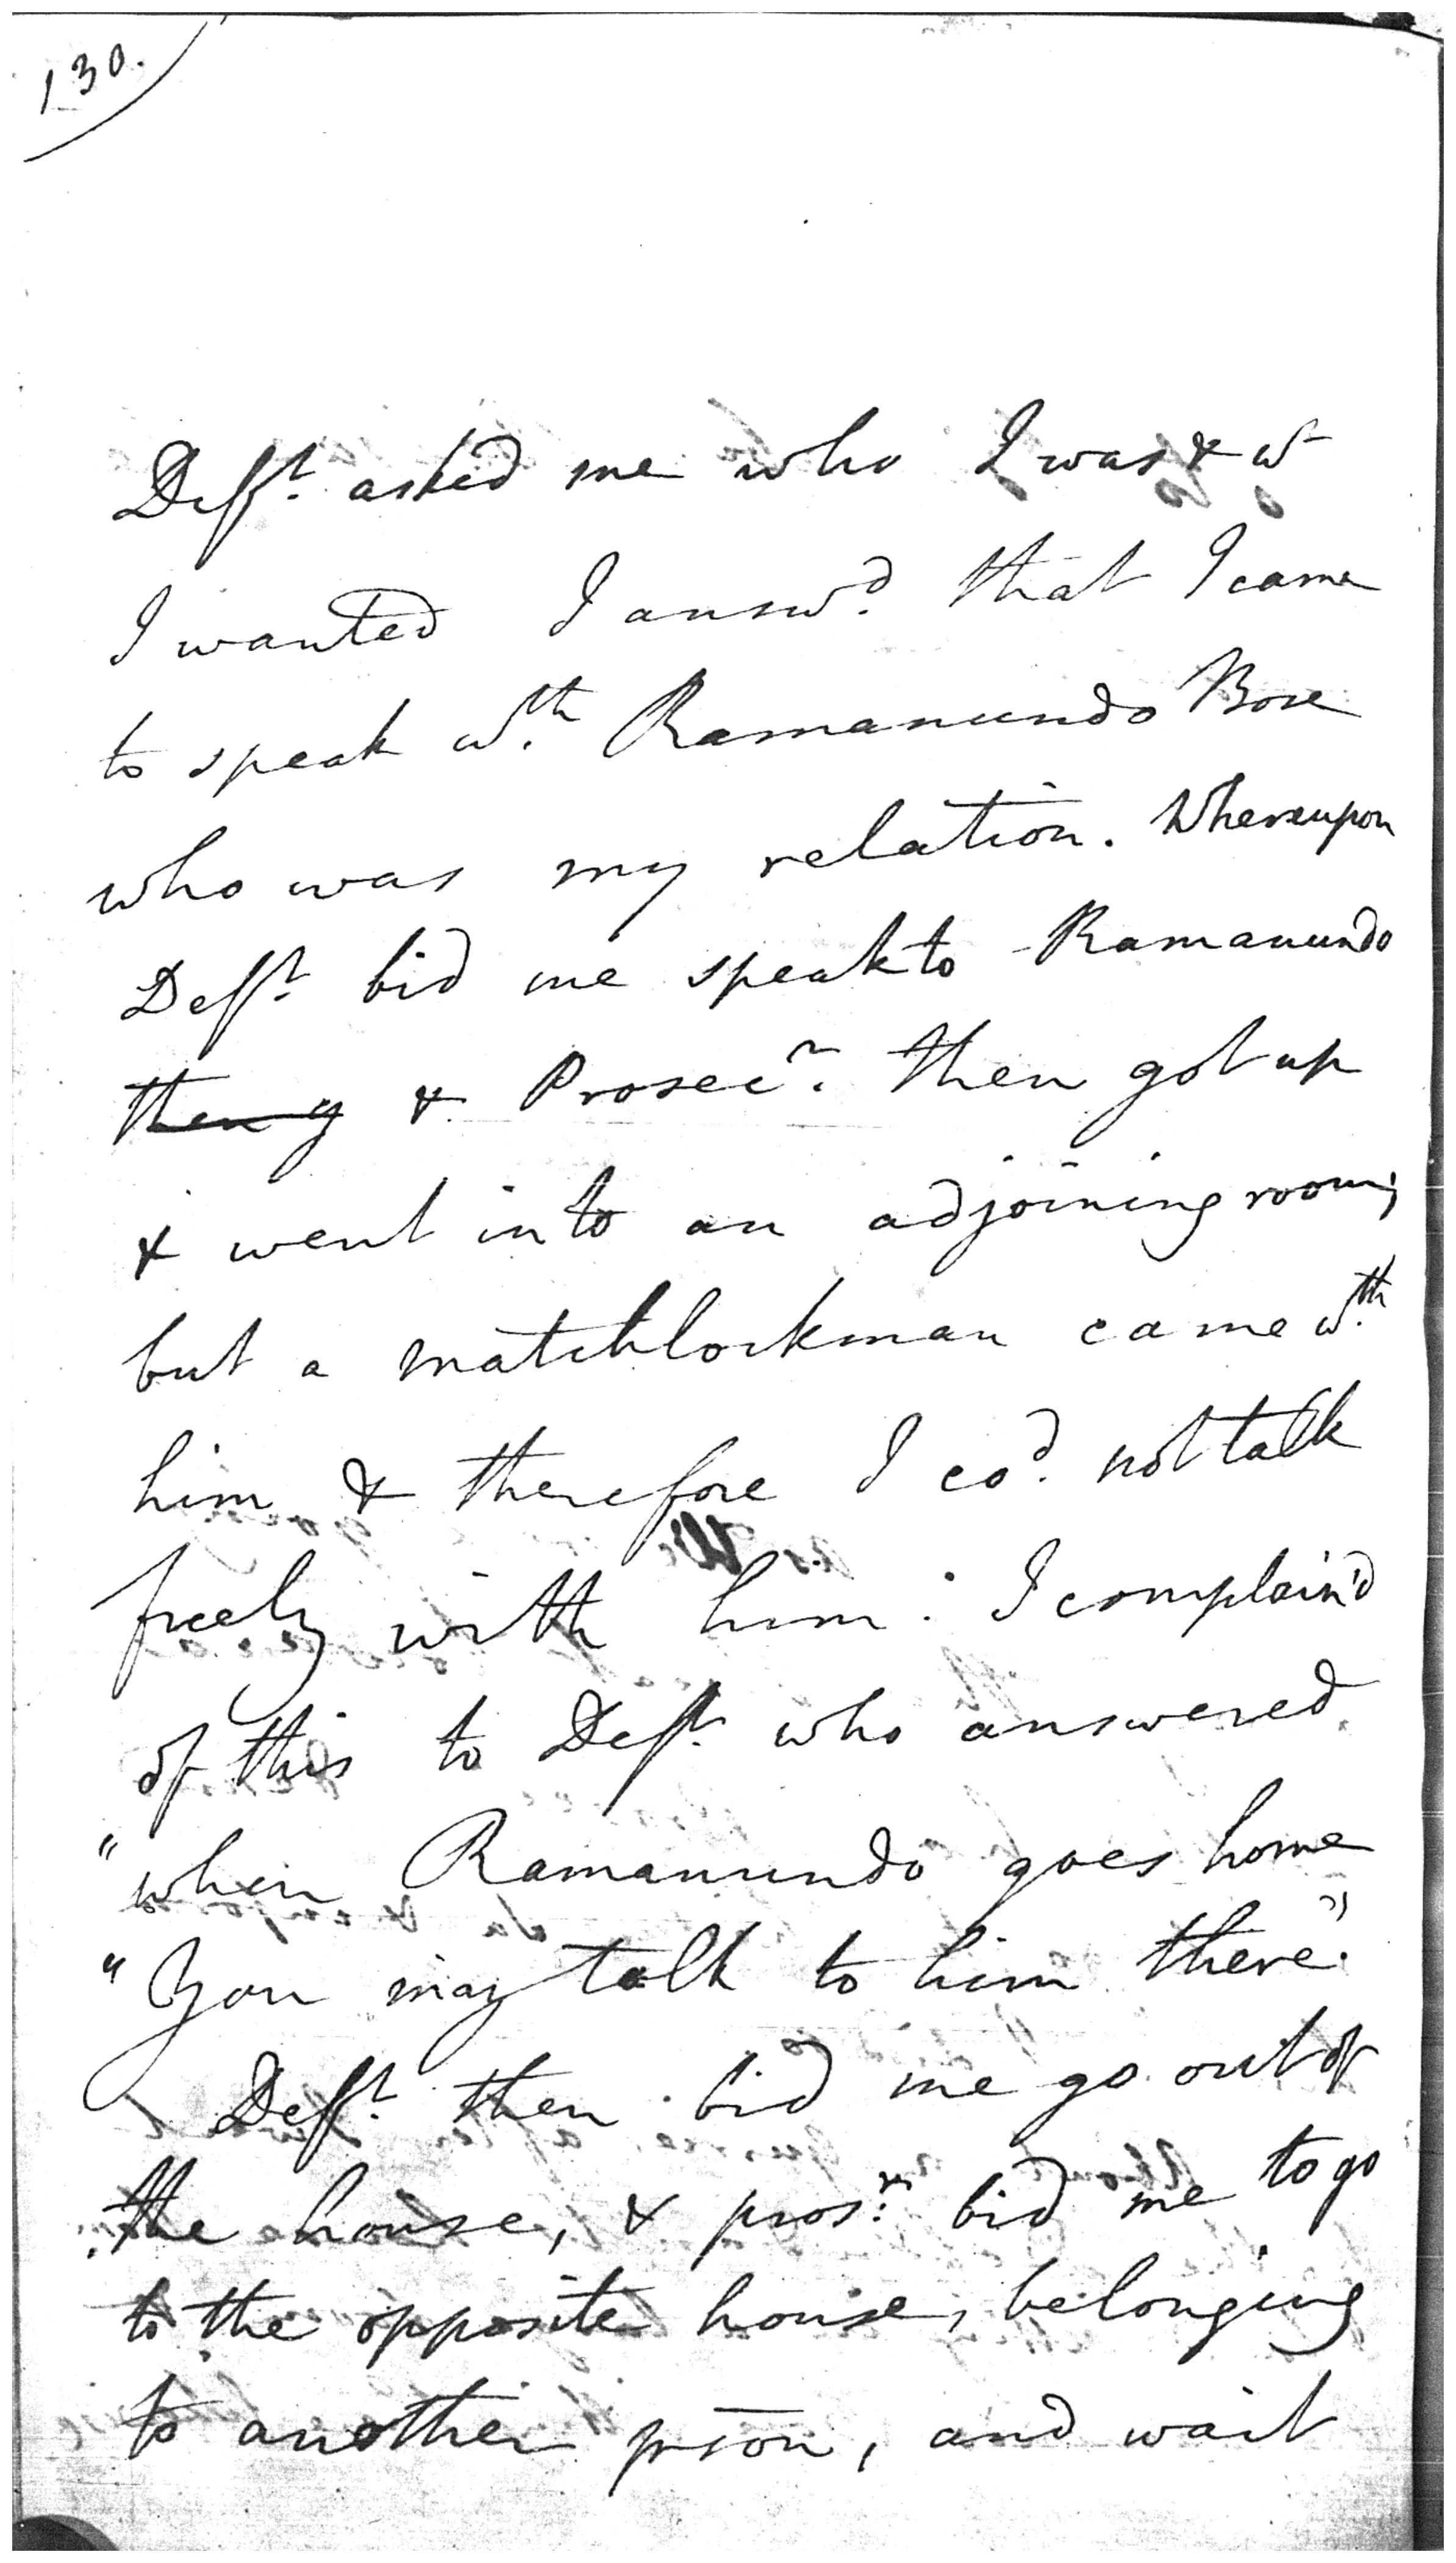 130.
Defft. asked me who I was & wt
I wanted I answd. that I came
to speak wth. Ramanundo Bose
who was my relation. Whereupon
Defft. bid me speak to Ramanundo
then g & Prosecr. then got up
& went into an adjoining room;
but a matchlockman came wth.
him & therefore I cod. not talk
freely with him: I complain'd
of this to Deft. who answered
"when Ramanundo goes home
"You may talk to him there."
Defft. then bid me go out of
the house, & prosr. bid me to go
to the opposite house, belonging
to another pson, and wait